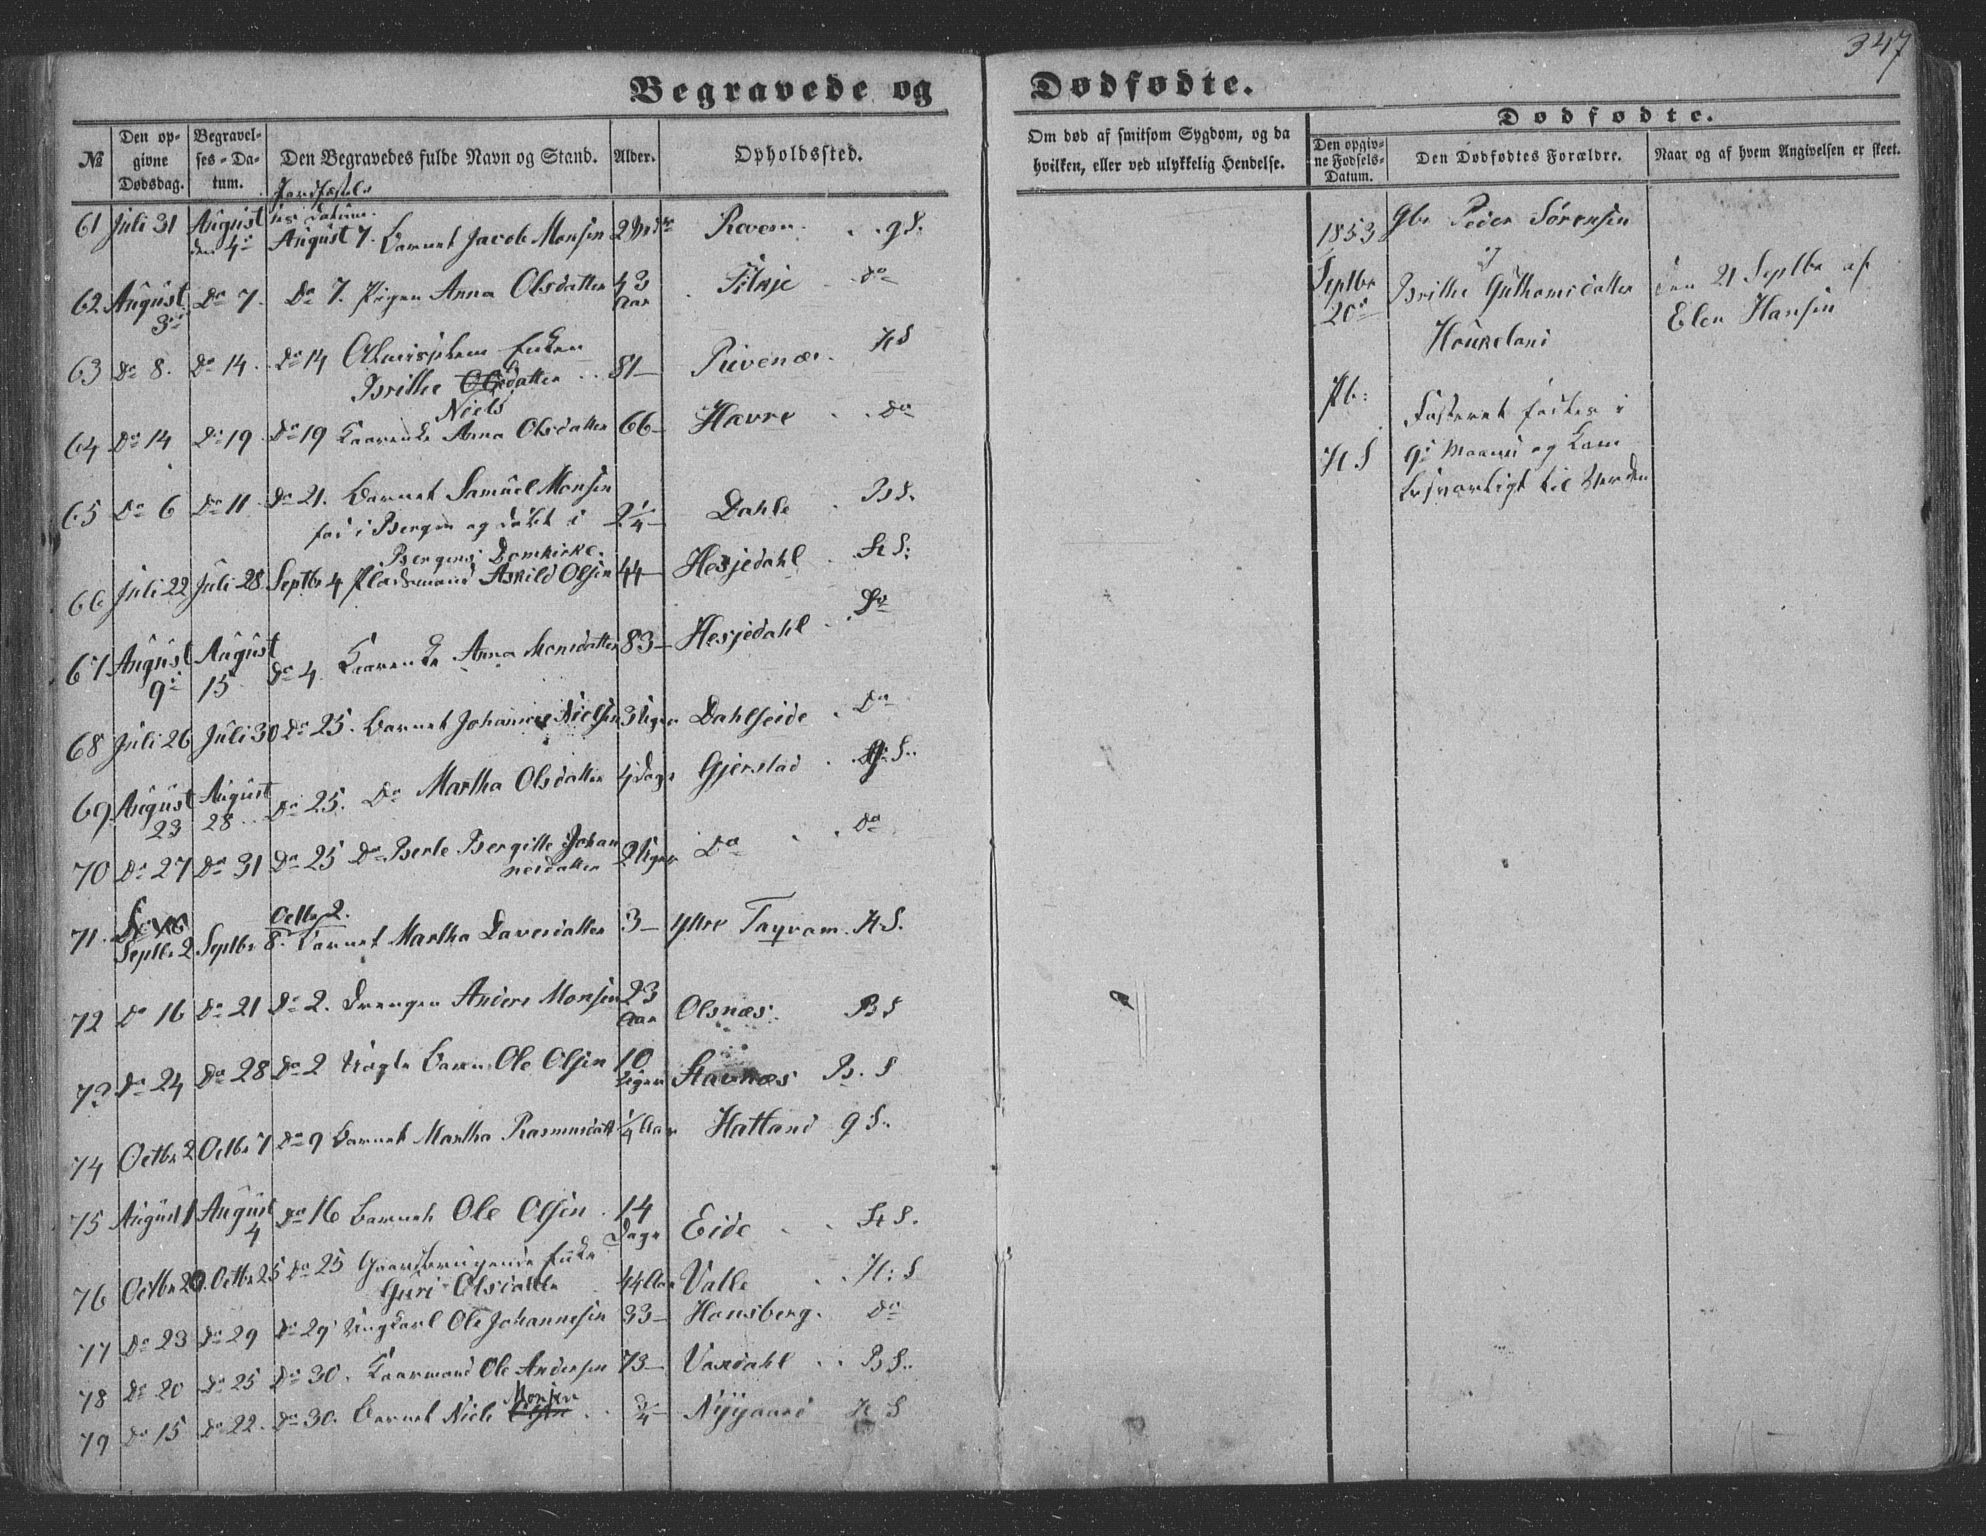 347
Begravede og Dødfødte.
№ Den opgivne Dødsdag. Begravelses-Datum. Den Begravedes fulde Navn og Stand. Alder. Opholdssted.
Om død af smitsom Sygdom, og da hvilken, eller ved ulykkelig Hendelse.
Dødfødte.
Den opgivne Fødsels-Datum. Den Dødfødtes Forældre. Naar og af hvem Angivelsen er skeet.
Jordfæstelses Datum.
61 Juli 31 August den 4de August 7. Barnet Jacob Monsen
62 August 3die Do 7. Do 7. Pigen Anna Olsdatter 43 Aar Do
63 Do 8. Do 14. Do 14 Enken
Brithe Olsdatter 81 H S
Niels
64 Do 14 Do 19 Do 19 Kaarenke Anna Olsdatter 66 Havre Do
65 Do 6 Do 11 Do 21. Barnet Samuel Monsen
fød i Bergen og døbt i 2 1/4 Dahle B S.
Bergens Domkirke.
66 Juli 22 Juli 28 Septbr 4 Pladsmand Askild Olsen 44 Hesjedahl St S:
67 August 9de August 15 Do 4. Kaarenke Anna Monsdatter 83 Hesjedahl Do
68 Juli 26 Juli 30 Do 25. Barnet Johannes Nielsen 3 Uger Dahlseide Do
69 August 23 August 28 Do 25. Do Martha Olsdatter 4 Dage Gjerstad
70 Do 27 Do 31 Do 25 Do Berte Bergitte Johannesdatter 2 Uger Do Do
71. Septbr 2 Septbr 8. Octbr 2. Barnet Martha Davidsdatter 3 Ytre H S.
72 Do 16 Do 21 Do 2. Drengen Anders Monsen 23 Aar Olsnæs B S
73 Do 24 Do 28 Do 2 Uægte Barn Ole Olsen 10 Uger Stavnæs B. S
74 Octbr 2 Octbr 7 Do 9 Barnet Martha Rasmusdatt 1/4 Aar Hatland G S.
75 August 1 August 4 Do 16 Barnet Ole Olsen 14 Dage Eide St S.
76 Octbr 20. Octbr 25 Do 25 Gaardbrugende Enke
Guri Olsdatter 44 Aar Valle H: S
77 Do 23 Do 29 Do 29 Ungkarl Ole Johannesen 33 Hansberg. Do
78 Do 20 Do 25 Do 30. Kaarmand Ole Andersen 73 Vaxdahl B S.
79 Do 15 Do 22. Do 30. Barnet Niels Olsen Monsen 3/4 Nygaard H S
1853 Gbr Peder Sørensen
og
Septbr 20de Brithe Guthormsdatter
Houkeland
den 21 Septbr af
Elen Hansen
Pb:
Fosteret født i
H S 9de Maaned og kom
besværligt til Verden